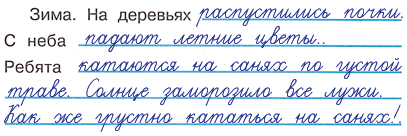 Зима. На деревьях распустились почки.
С неба падают летние цветы..
Ребята катаются на санях по густой
траве. Солнце заморозило все лужи.
Как же грустно кататься на санях!.